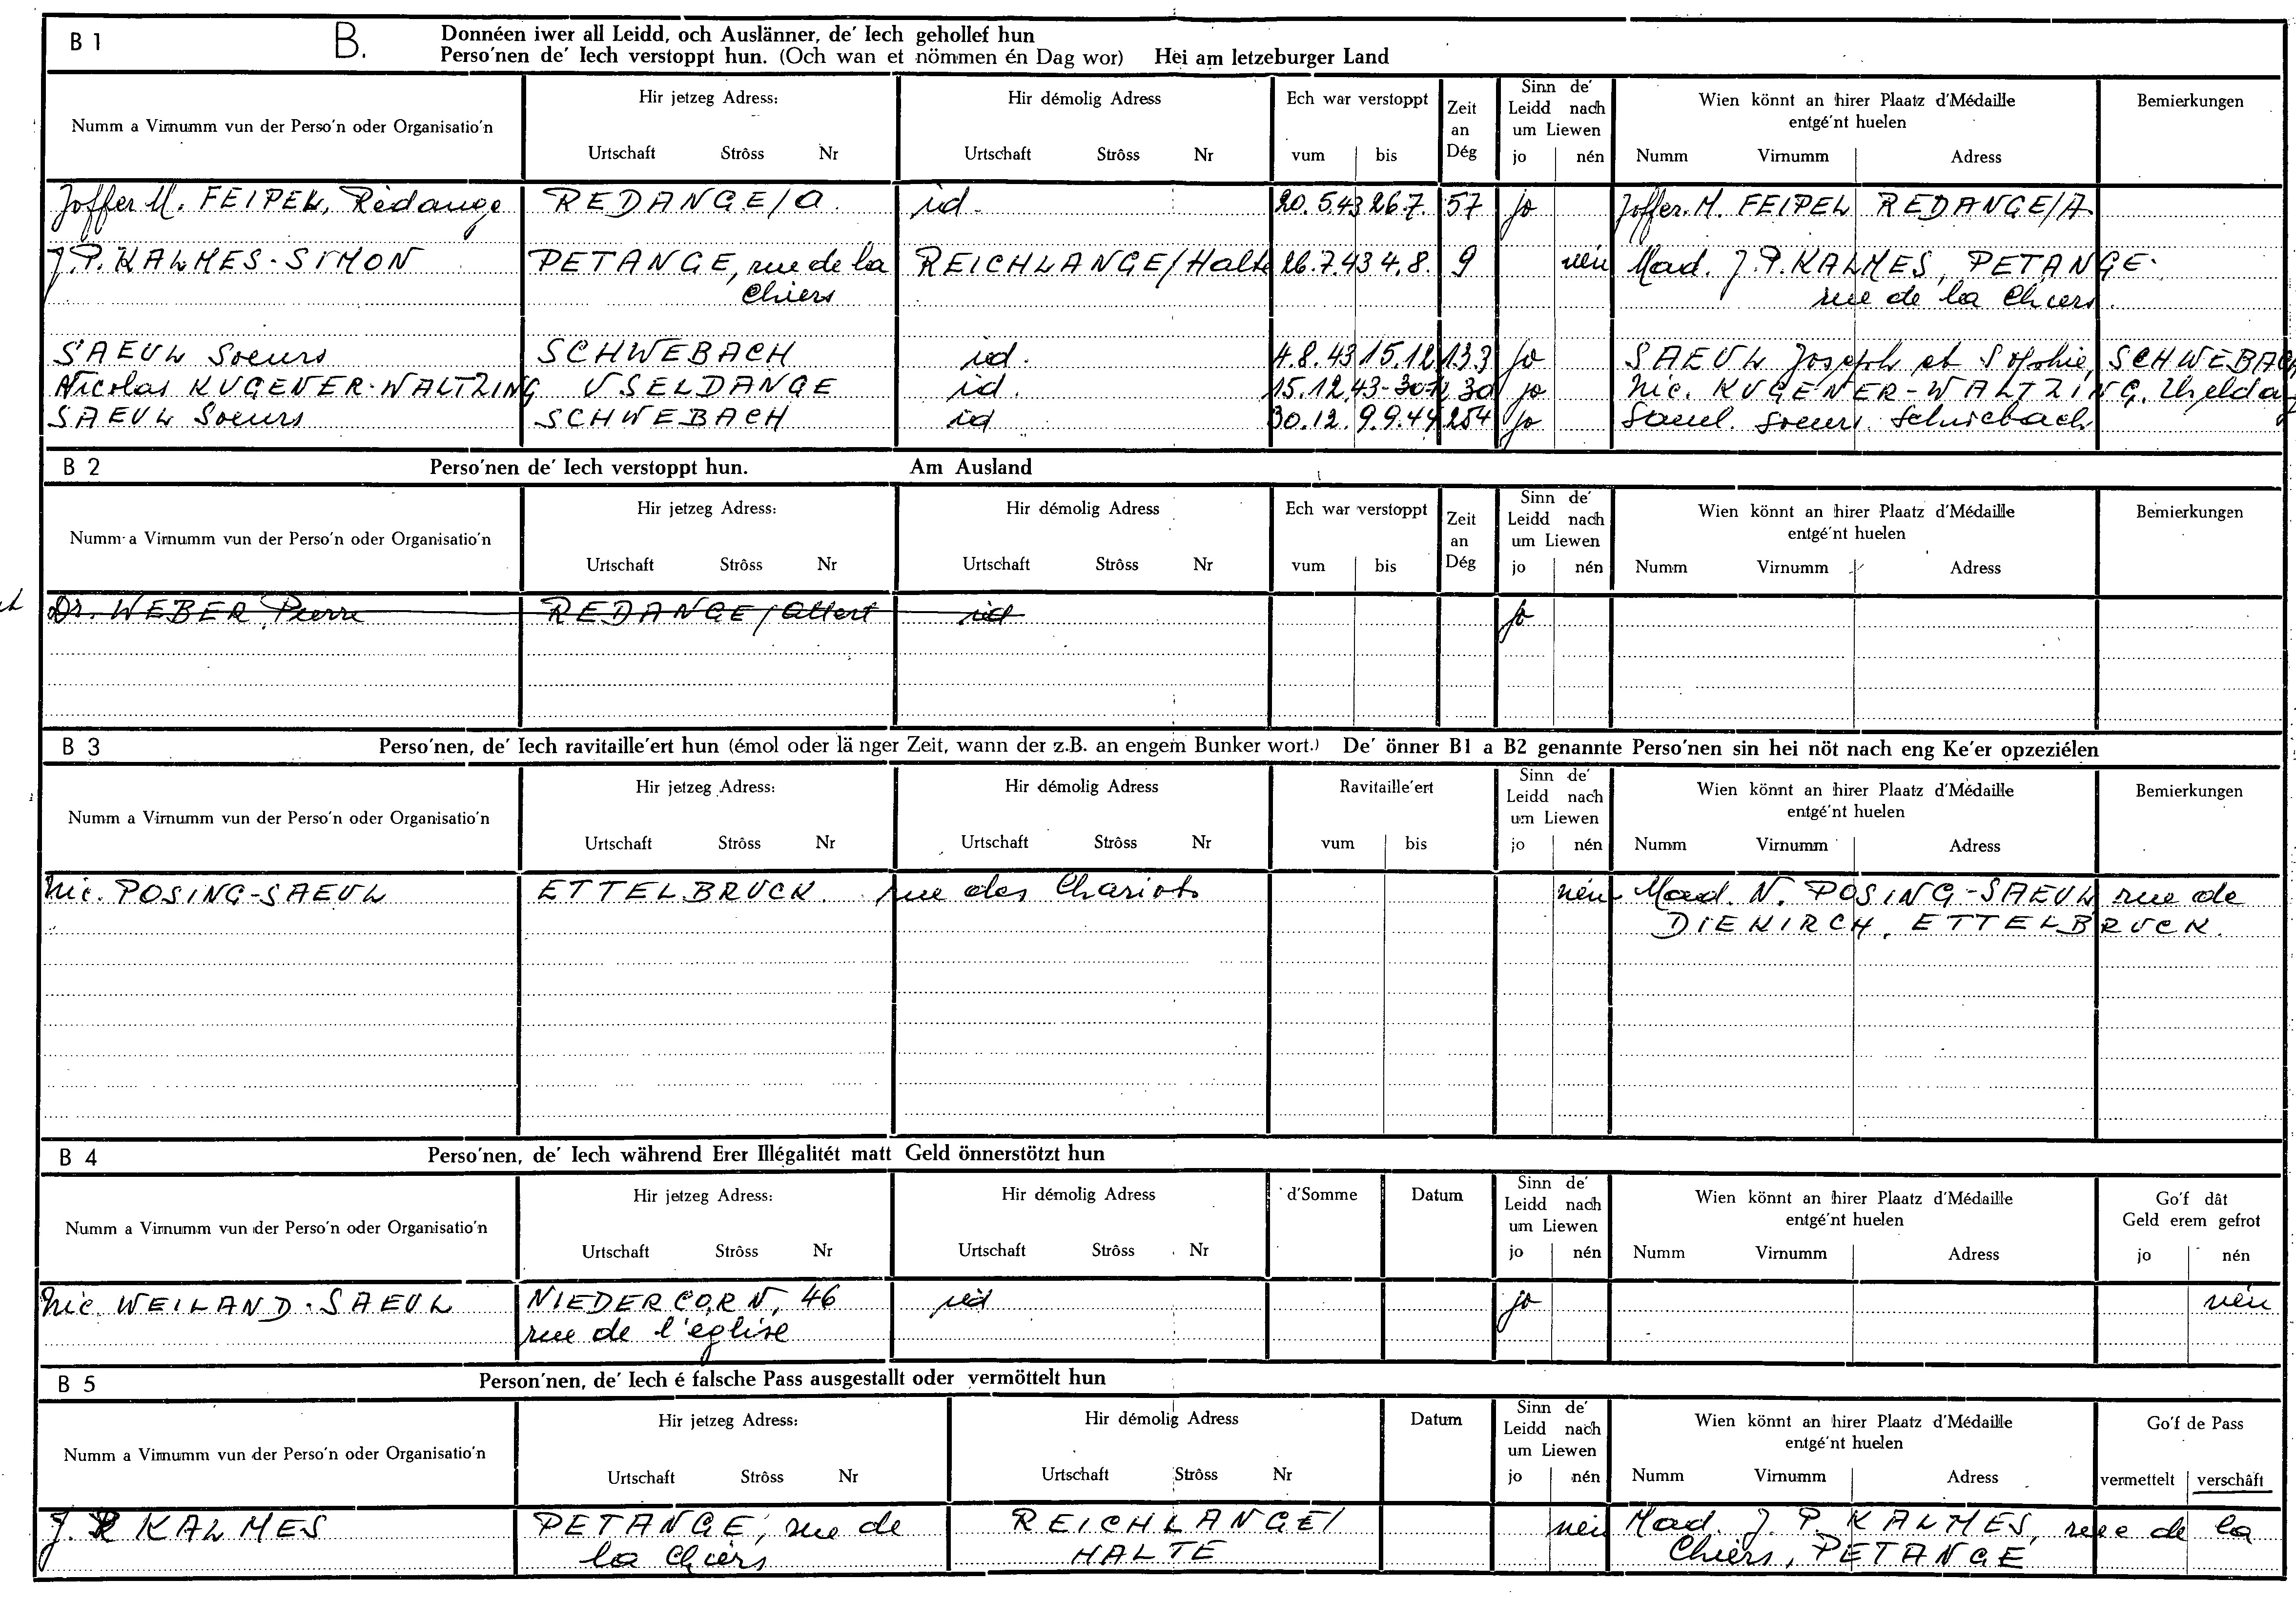 B 1 B. Donnéen iwer all Leidd, och Auslänner, de' Iech gehollef hun
Perso'nen de' Iech verstoppt hun. (Och wan et nömmen én Dag wor) Hei am letzeburger Land
Numm a Virnumm vun der Perso'n oder Organisatio'n
Hir jetzeg Adress:
Urtschaft Strôss Nr
Hir démolig Adress
Urtschaft Strôss Nr
Ech war verstoppt
vum bis
Zeit
an
Dég
Sinn de'
Leidd nach
um Liewen
jo nén
Wien könnt an hirer Plaatz d'Médaille
entgé'nt huelen
Numm Virnumm Adress
Bemierkungen
Joffer M. FEIPEL, Rédange REDANGE/A. id. 20.5.43 26.7. 57 jo Joffer. M. FEIPEL REDANGE/A
J.P. KALMES-SIMON PETANGE, rue de la REICHLANGE/Halte 26.7.43 4.8. 9 nén Mad. J.P. KALMES, PETANGE.
Chiers rue de la Chiers.
SAEUL Soeurs SCHWEBACH id. 4.8.43 15.12 133 jo SAEUL Joseph et Sophie, SCHWEBACH
Nicolas KUGENER-WALTZING USELDANGE id. 15.12.43-30.12 30 jo Nic. KUGENER-WALTZING.
SAEUL Soeurs SCHWEBACH id 30.12. 9.9.44 254 jo Saeul. Soeurs. Schwebach
B 2 Perso'nen de' Iech verstoppt hun. Am Ausland
Numm a Virnumm vun der Perso'n oder Organisatio'n
Hir jetzeg Adress:
Urtschaft Strôss Nr
Hir démolig Adress
Urtschaft Strôss Nr
Ech war verstoppt
vum bis
Zeit
an
Dég
Sinn de'
Leidd nach
um Liewen
jo nén
Wien könnt an hirer Plaatz d'Médaille
entgé'nt huelen
Numm Virnumm Adress
Bemierkungen
Dr. WEBER Pierre REDANGE/Attert id jo
B 3 Perso'nen, de' Iech ravitaille'ert hun (émol oder länger Zeit, wann der z.B. an engem Bunker wort.) De' önner B1 a B2 genannte Perso'nen sin hei nöt nach eng Ke'er opzeziélen
Numm a Virnumm vun der Perso'n oder Organisatio'n
Hir jetzeg Adress:
Urtschaft Strôss Nr
Hir démolig Adress
Urtschaft Strôss Nr
Ravitaille'ert
vum bis
Sinn de'
Leidd nach
um Liewen
jo nén
Wien könnt an hirer Plaatz d'Médaille
entgé'nt huelen
Numm Virnumm Adress
Bemierkungen
Nic. POSING-SAEUL ETTELBRUCK rue des Chariots nén Mad. N. POSING-SAEUL rue de
DIEKIRCH, ETTELBRUCK.
B 4 Perso'nen, de' Iech während Erer Illégalitét matt Geld önnerstötzt hun
Numm a Virnumm vun der Perso'n oder Organisatio'n
Hir jetzeg Adress:
Urtschaft Strôss Nr
Hir démolig Adress
Urtschaft Strôss Nr
d'Somme
Datum
Sinn de'
Leidd nach
um Liewen
jo nén
Wien könnt an hirer Plaatz d'Médaille
entgé'nt huelen
Numm Virnumm Adress
Go'f dât
Geld erem gefrot
jo nén
Nic. WEILAND-SAEUL NIEDERCORN, 46 id jo nén
rue de l'église
B 5 Person'nen, de' Iech é falsche Pass ausgestallt oder vermöttelt hun
Numm a Virnumm vun der Perso'n oder Organisatio'n
Hir jetzeg Adress:
Urtschaft Strôss Nr
Hir démolig Adress
Urtschaft Strôss Nr
Datum
Sinn de'
Leidd nach
um Liewen
jo nén
Wien könnt an hirer Plaatz d'Médaille
entgé'nt huelen
Numm Virnumm Adress
Go'f de Pass
vermettelt verschâft
J. P. KALMES PETANGE, rue de REICHLANGE/ nén Mad. J. P. KALMES, rue de la
la Chiers HALTE Chiers, PETANGE